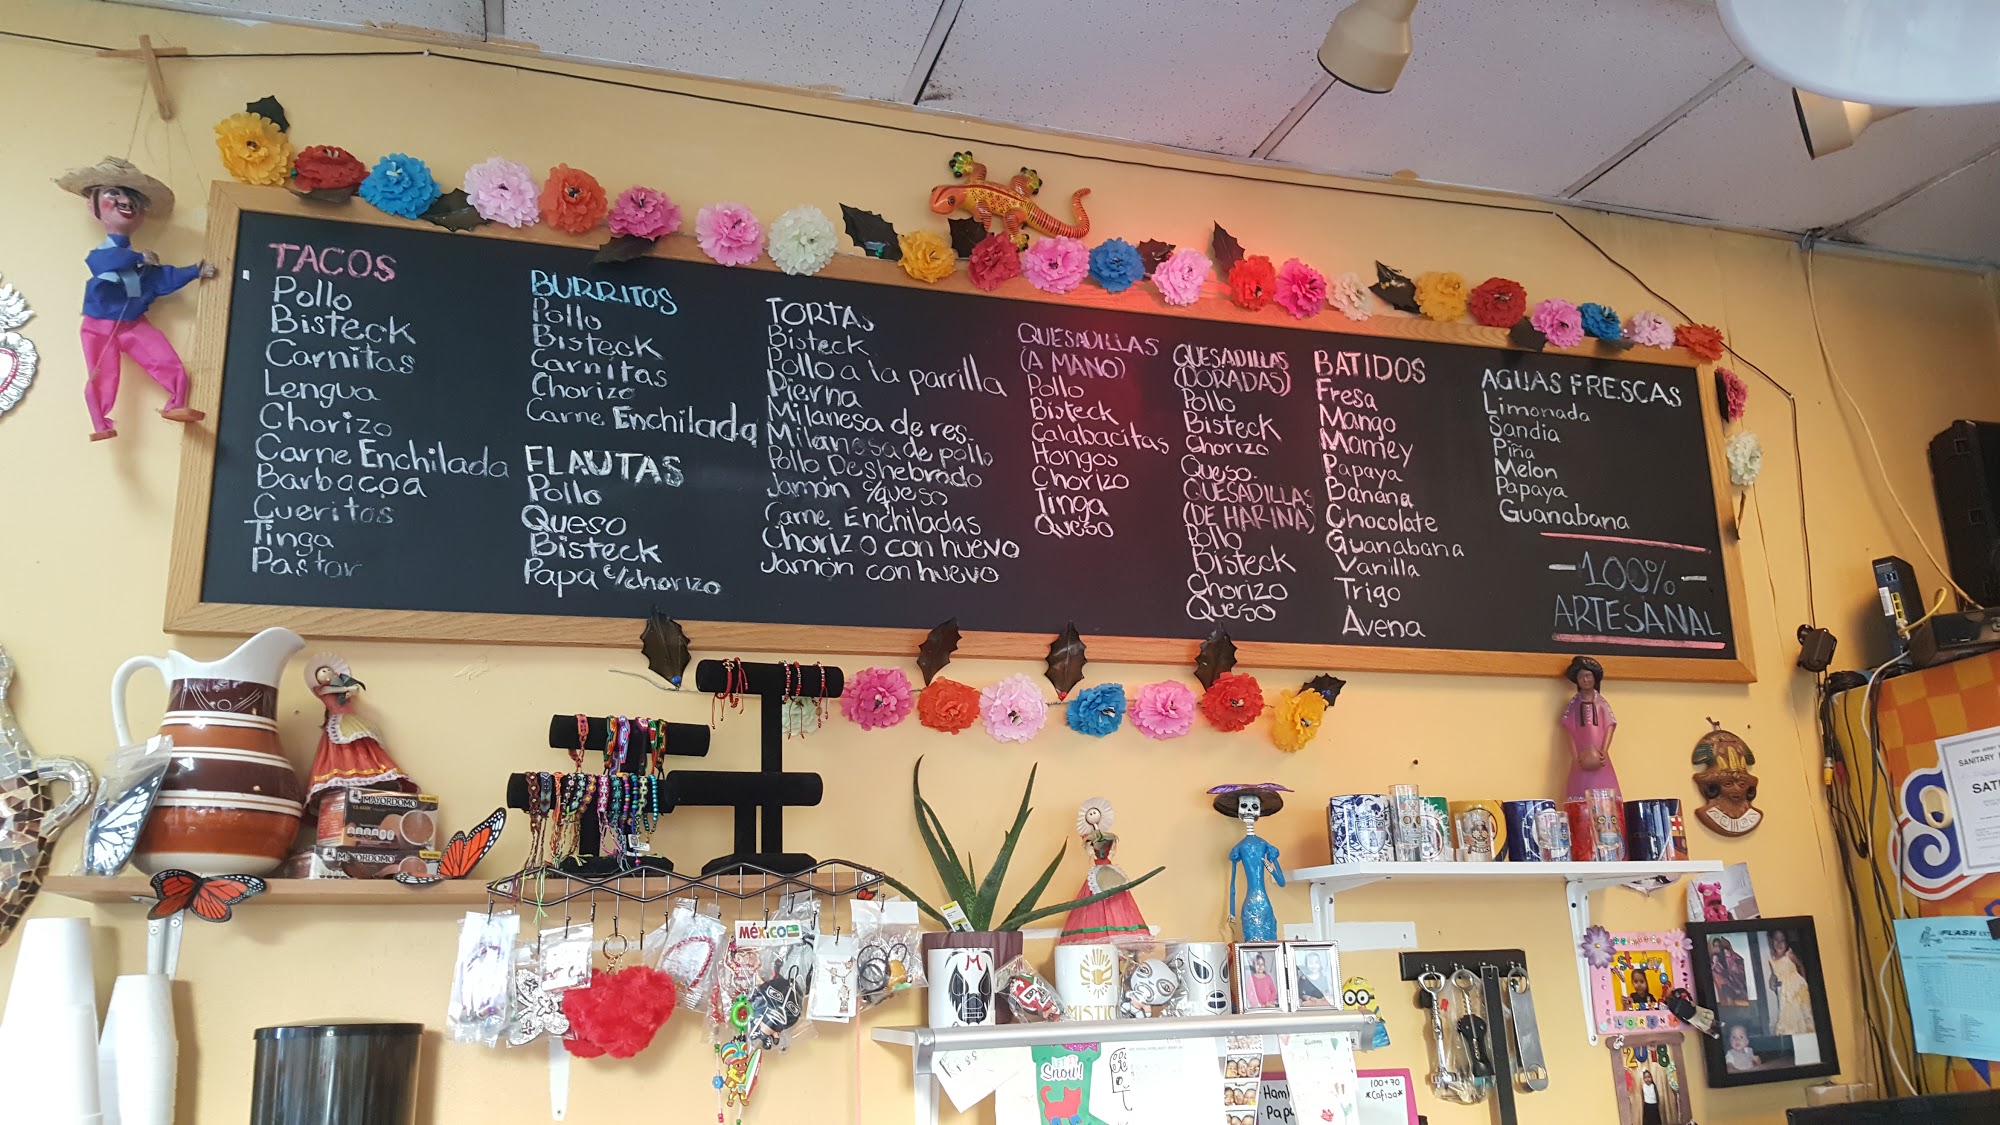 TACOS
Pollo
Bisteck
Carnitas
Lengua
Chorizo
Carne Enchilada
Barbacoa
Cueritos
Tinga
Pastor
BURRITOS
Pollo
Bisteck
Carnitas
Chorizo
Carne Enchilada
FLAUTAS
Pollo
Queso
Bisteck
Papa c/chorizo
TORTAS
Bisteck
Pollo a la parrilla
Pierna
Milanesa de res.
Milanesa de pollo
Pollo Deshebrado
Jamón c/queso
Carne Enchiladas
Chorizo con huevo
Jamón con huevo
QUESADILLAS
(A MANO)
Pollo
Bisteck
Calabacitas
Hongos
Chorizo
Tinga
Queso
QUESADILLAS
(DORADAS)
Pollo
Bisteck
Chorizo
Queso.
QUESADILLAS
(DE HARINA)
Pollo
Bisteck
Chorizo
Queso
BATIDOS
Fresa
Mango
Mamey
Papaya
Banana
Chocolate
Guanabana
Vanilla
Trigo
Avena
AGUAS FRESCAS
Limonada
Sandia
Piña
Melon
Papaya
Guanabana
-100%-
ARTESANAL
MAYORDOMO
MAYORDOMO
MÉXICO
M
MISTIC
Snow!
100+70
*Cafisa*
LOREN
2018
SANITARY
FLASH